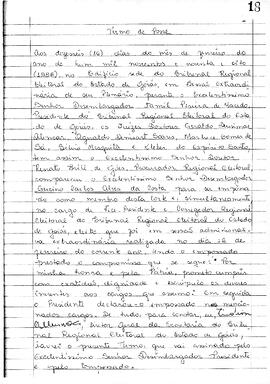 18
Termo de Posse
Aos dezesseis (16) dias do mês de janeiro do
ano de hum mil novecentos e noventa e oito
(1998), no Edifício sede do Tribunal Regional
Eleitoral do Estado de Goiás, em Sessão Extraordi-
nária de seu Plenário, perante o Excelentíssimo
Senhor Desembargador Jamil Pereira de Macedo,
Presidente do Tribunal Regional Eleitoral do Es-
tado de Goiás, os Juízes Doutores Geraldo
e do Espírito Santo,
bem assim o Excelentíssimo Senhor Doutor
Renato Brill de Góes, Procurador Regional Eleitoral
compareceu o Excelentíssimo Senhor Desembargador
Carlos Alves da Costa para ser empossa-
do como membro desta Corte e, simultaneamente
no cargo de Vice-Presidente e Corregedor Regional
Eleitoral do Tribunal Regional Eleitoral do Estado
de Goiás, eleito que foi em sessão administrati-
va extraordinária realizada no dia
de janeiro do corrente ano, tendo o empossando
prestado o compromisso que se segue: "Por
minha honra e pela Pátria, prometo cumprir
com exatidão, dignidade e escrúpulo os deveres
inerentes aos cargos que assumo". Em seguida
o Presidente declarou-o empossado nos mencio-
nados cargos. De tudo, para constar, eu,
Diretor Geral da Secretaria do Tribu-
nal Regional Eleitoral do Estado de Goiás,
lavrei o presente Termo, que vai assinado pelo
Excelentíssimo Senhor Desembargador Presidente
e pelo Empossado.